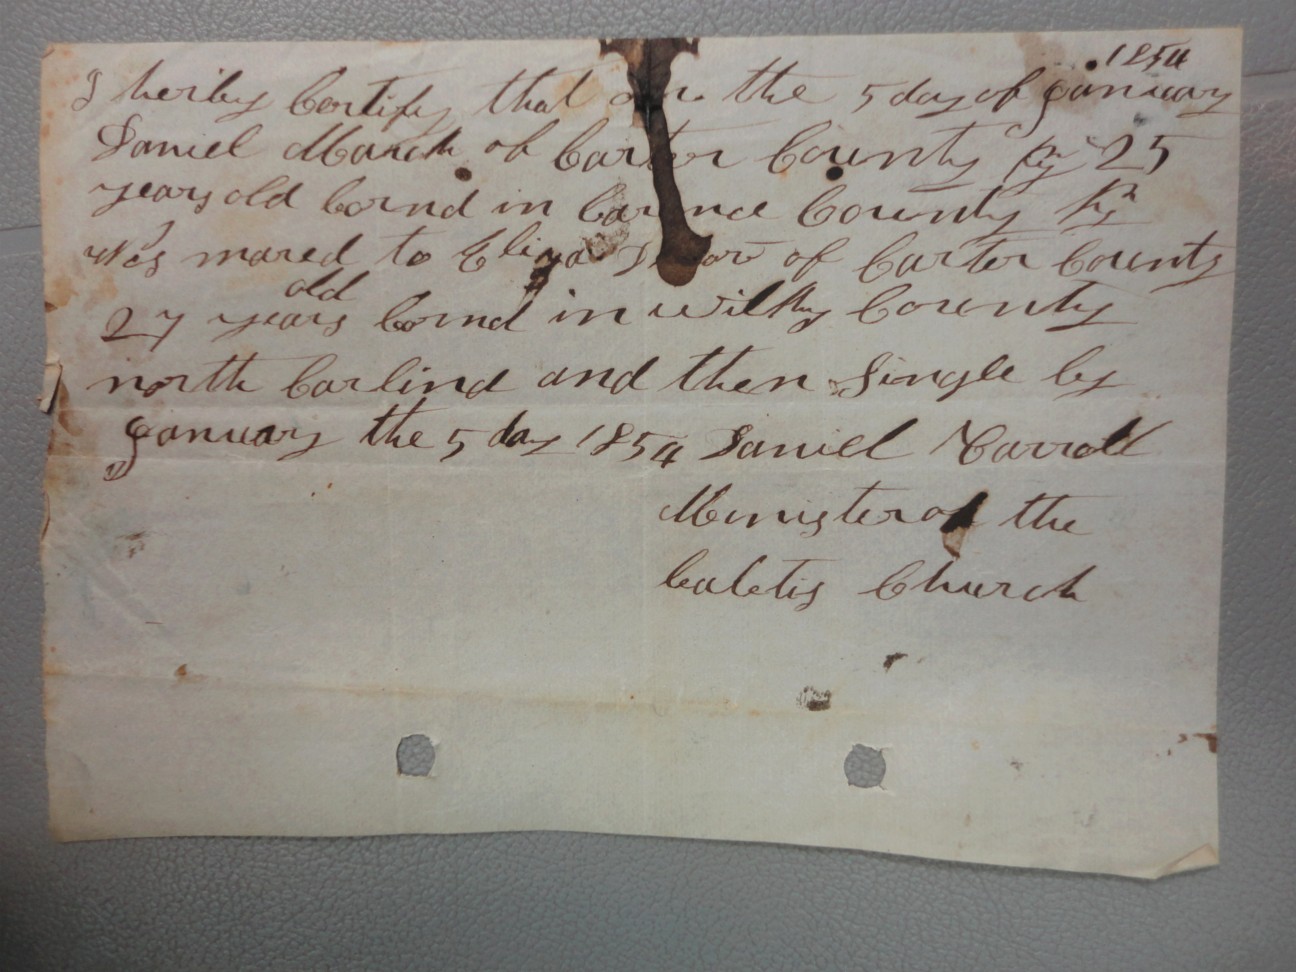 1854
I heriby Certify that on the 5 day of January
Daniel March of Carter County Ky 25
years old bornd in County Ky
Was mared to Eliza of Carter County
old
27 years bornd in Wilky County
north Carlind and then Single by
January the 5 day 1854 Daniel Carroll
Minister of the
Babtis Church